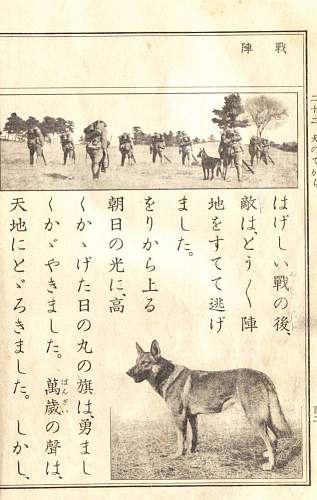 二十二 犬のてがら
戰 陣
はげしい戰の後、
敵は、とう〱陣
地をすてて逃げ
ました。
をりから上る
朝日の光に、高
くかゝげた日の丸の旗は、勇まし
くかゞやきました。萬歳の聲は、
ばんざい
天地にとゞろきました。しかし、